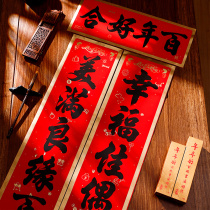 百年好合
幸福佳偶
美满良缘